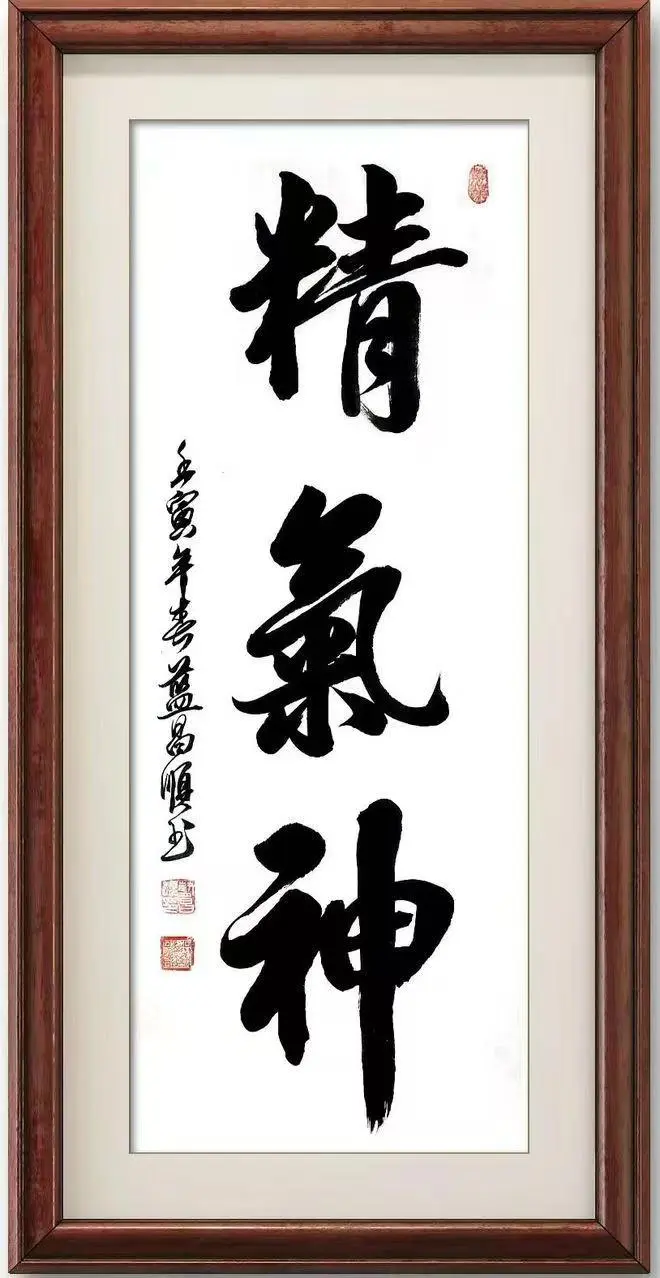 精氣神
壬寅年春藍昌順书